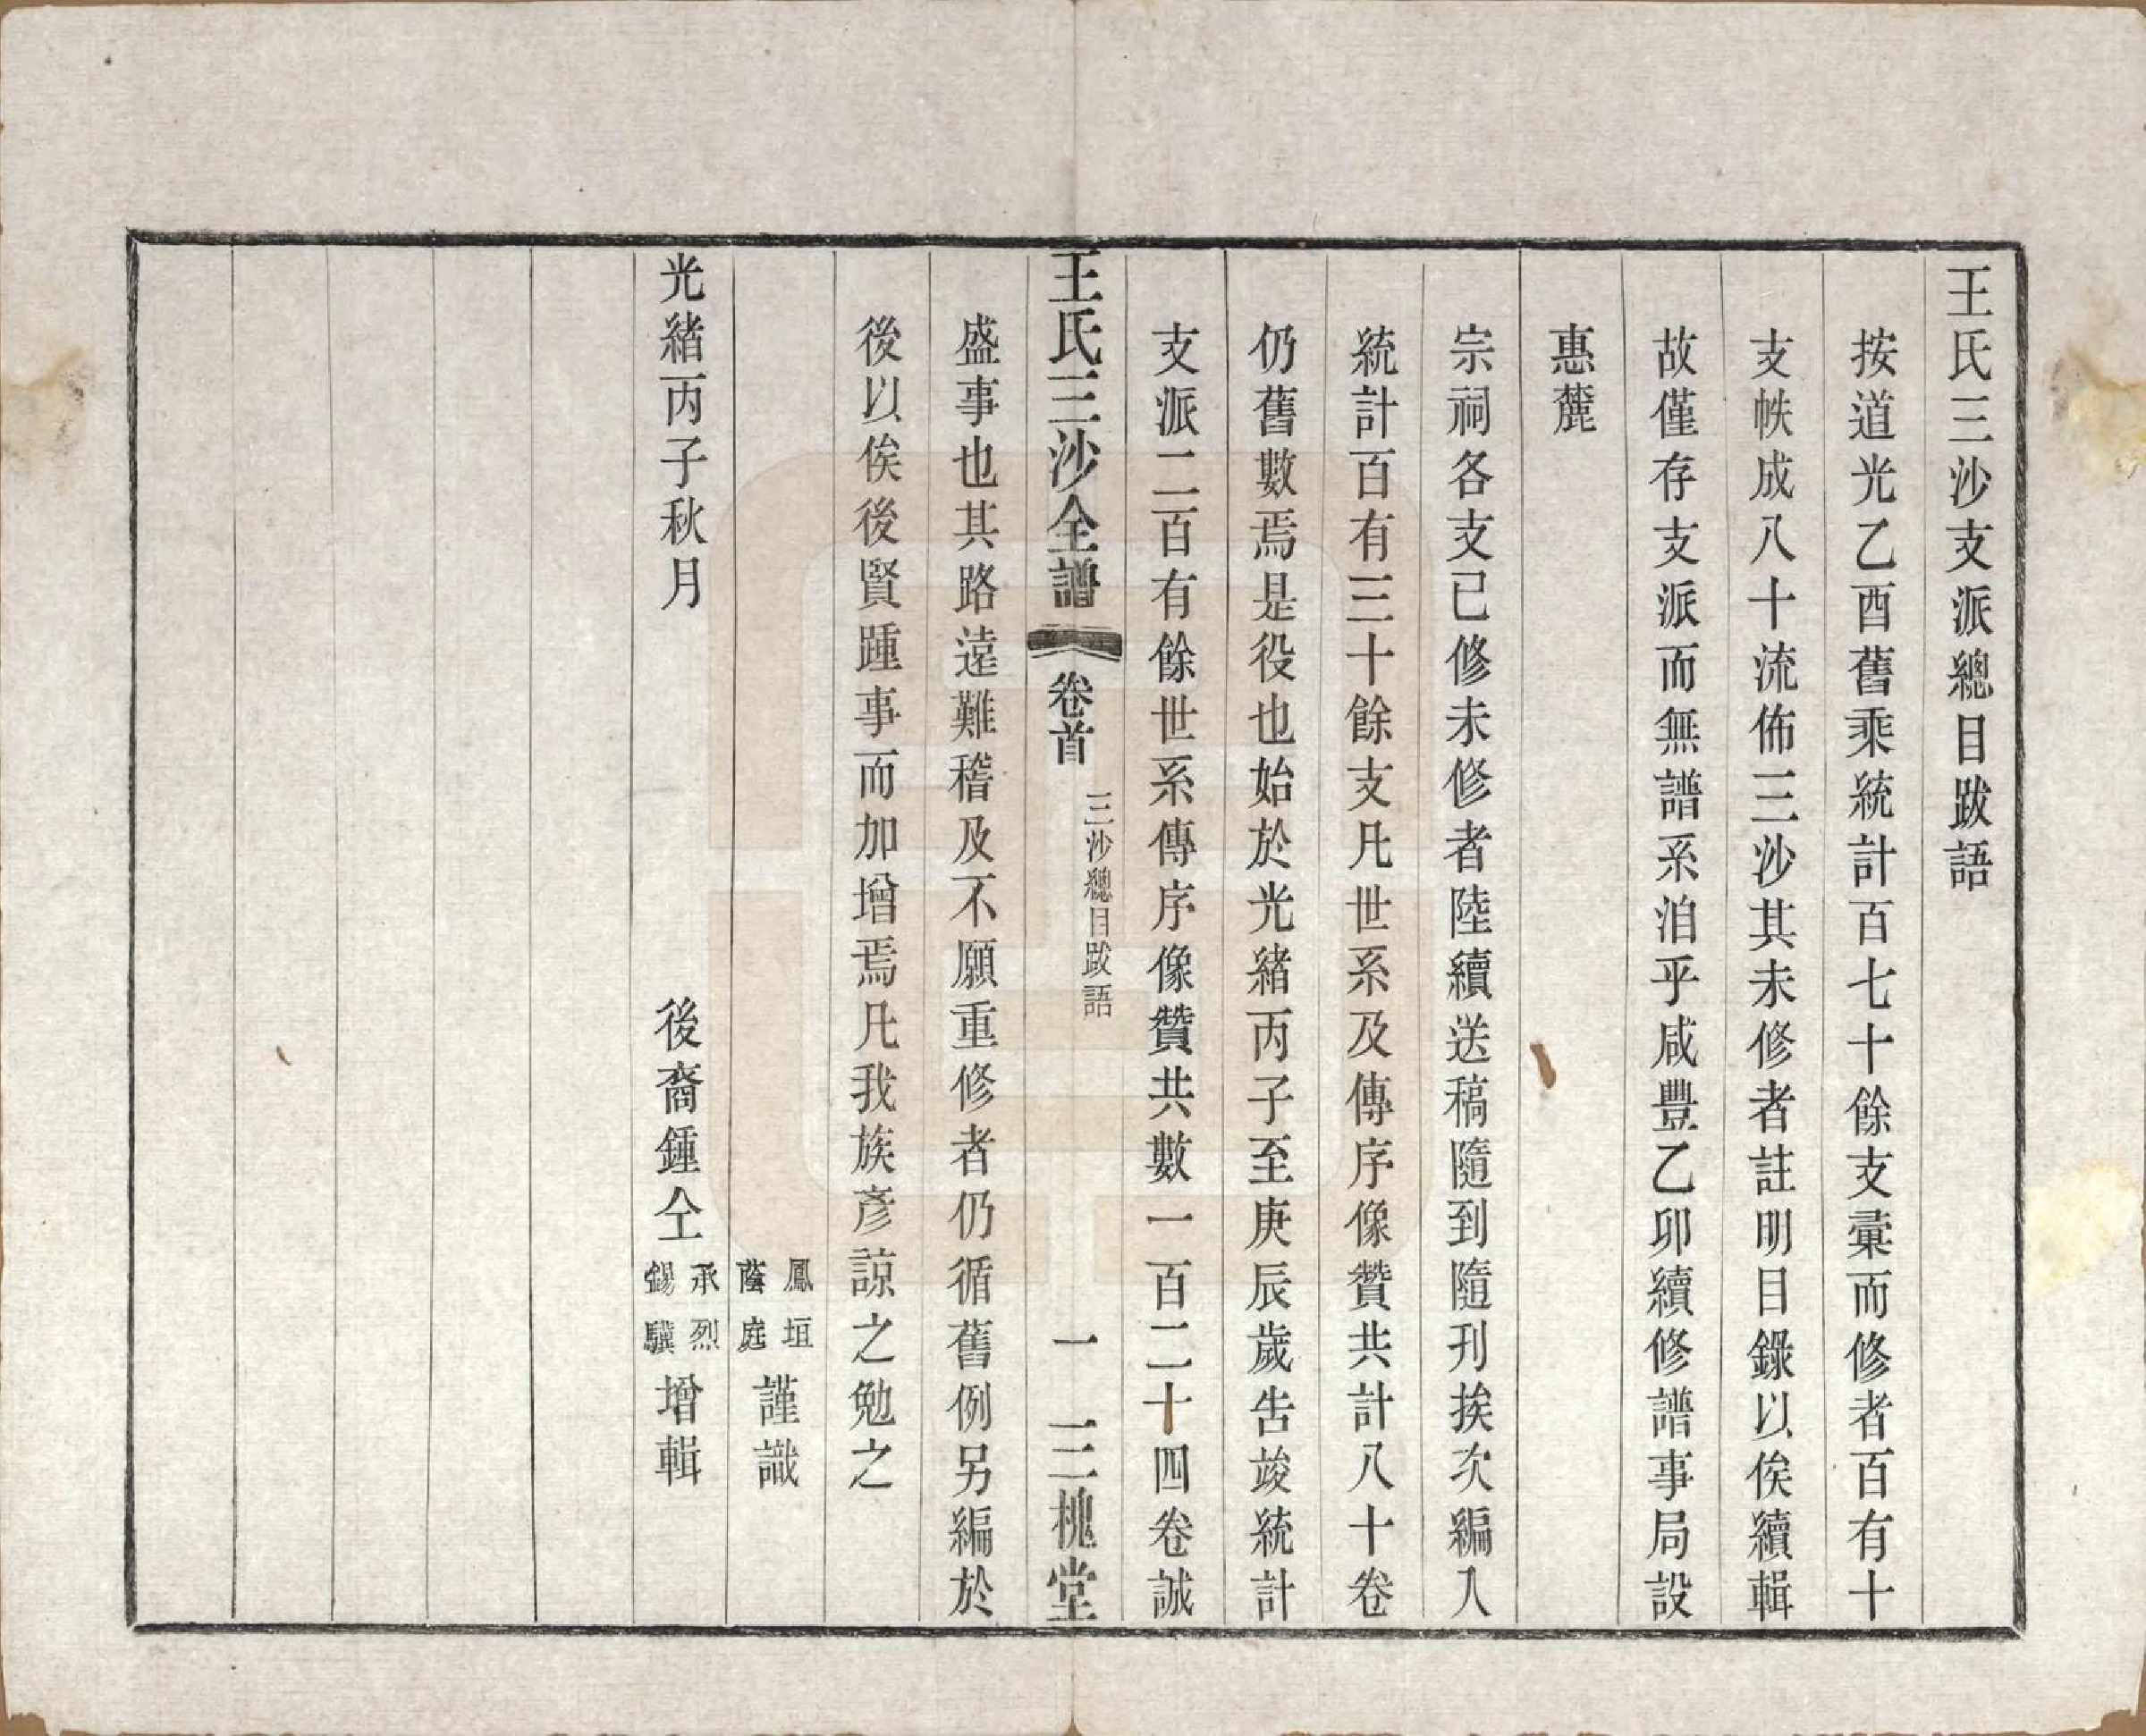 王氏三沙支派總目跋語
按道光乙酉舊乘統計百七十餘支彙而修者百有十
支帙成八十流佈三沙其未修者註明目錄以俟續輯
故僅存支派而無譜系洎乎咸豐乙卯續修譜事局設
惠麓
宗祠各支已修未修者陸續送稿隨到隨刊挨次編入
統計百有三十餘支凡世系及傳序像贊共計八十卷
仍舊數焉是役也始於光緒丙子至庚辰歲告竣統計
支派二百有餘世系傳序像贊共數一百二十四卷誠
王氏三沙全譜 卷首 三沙總目跋語 一 三槐堂
盛事也其路遠難稽及不願重修者仍循舊例另編於
後以俟後賢踵事而加增焉凡我族彥諒之勉之
鳳垣
蔭庭
謹識
光緒丙子秋月 後裔鍾仝
承烈
錫驥
增輯